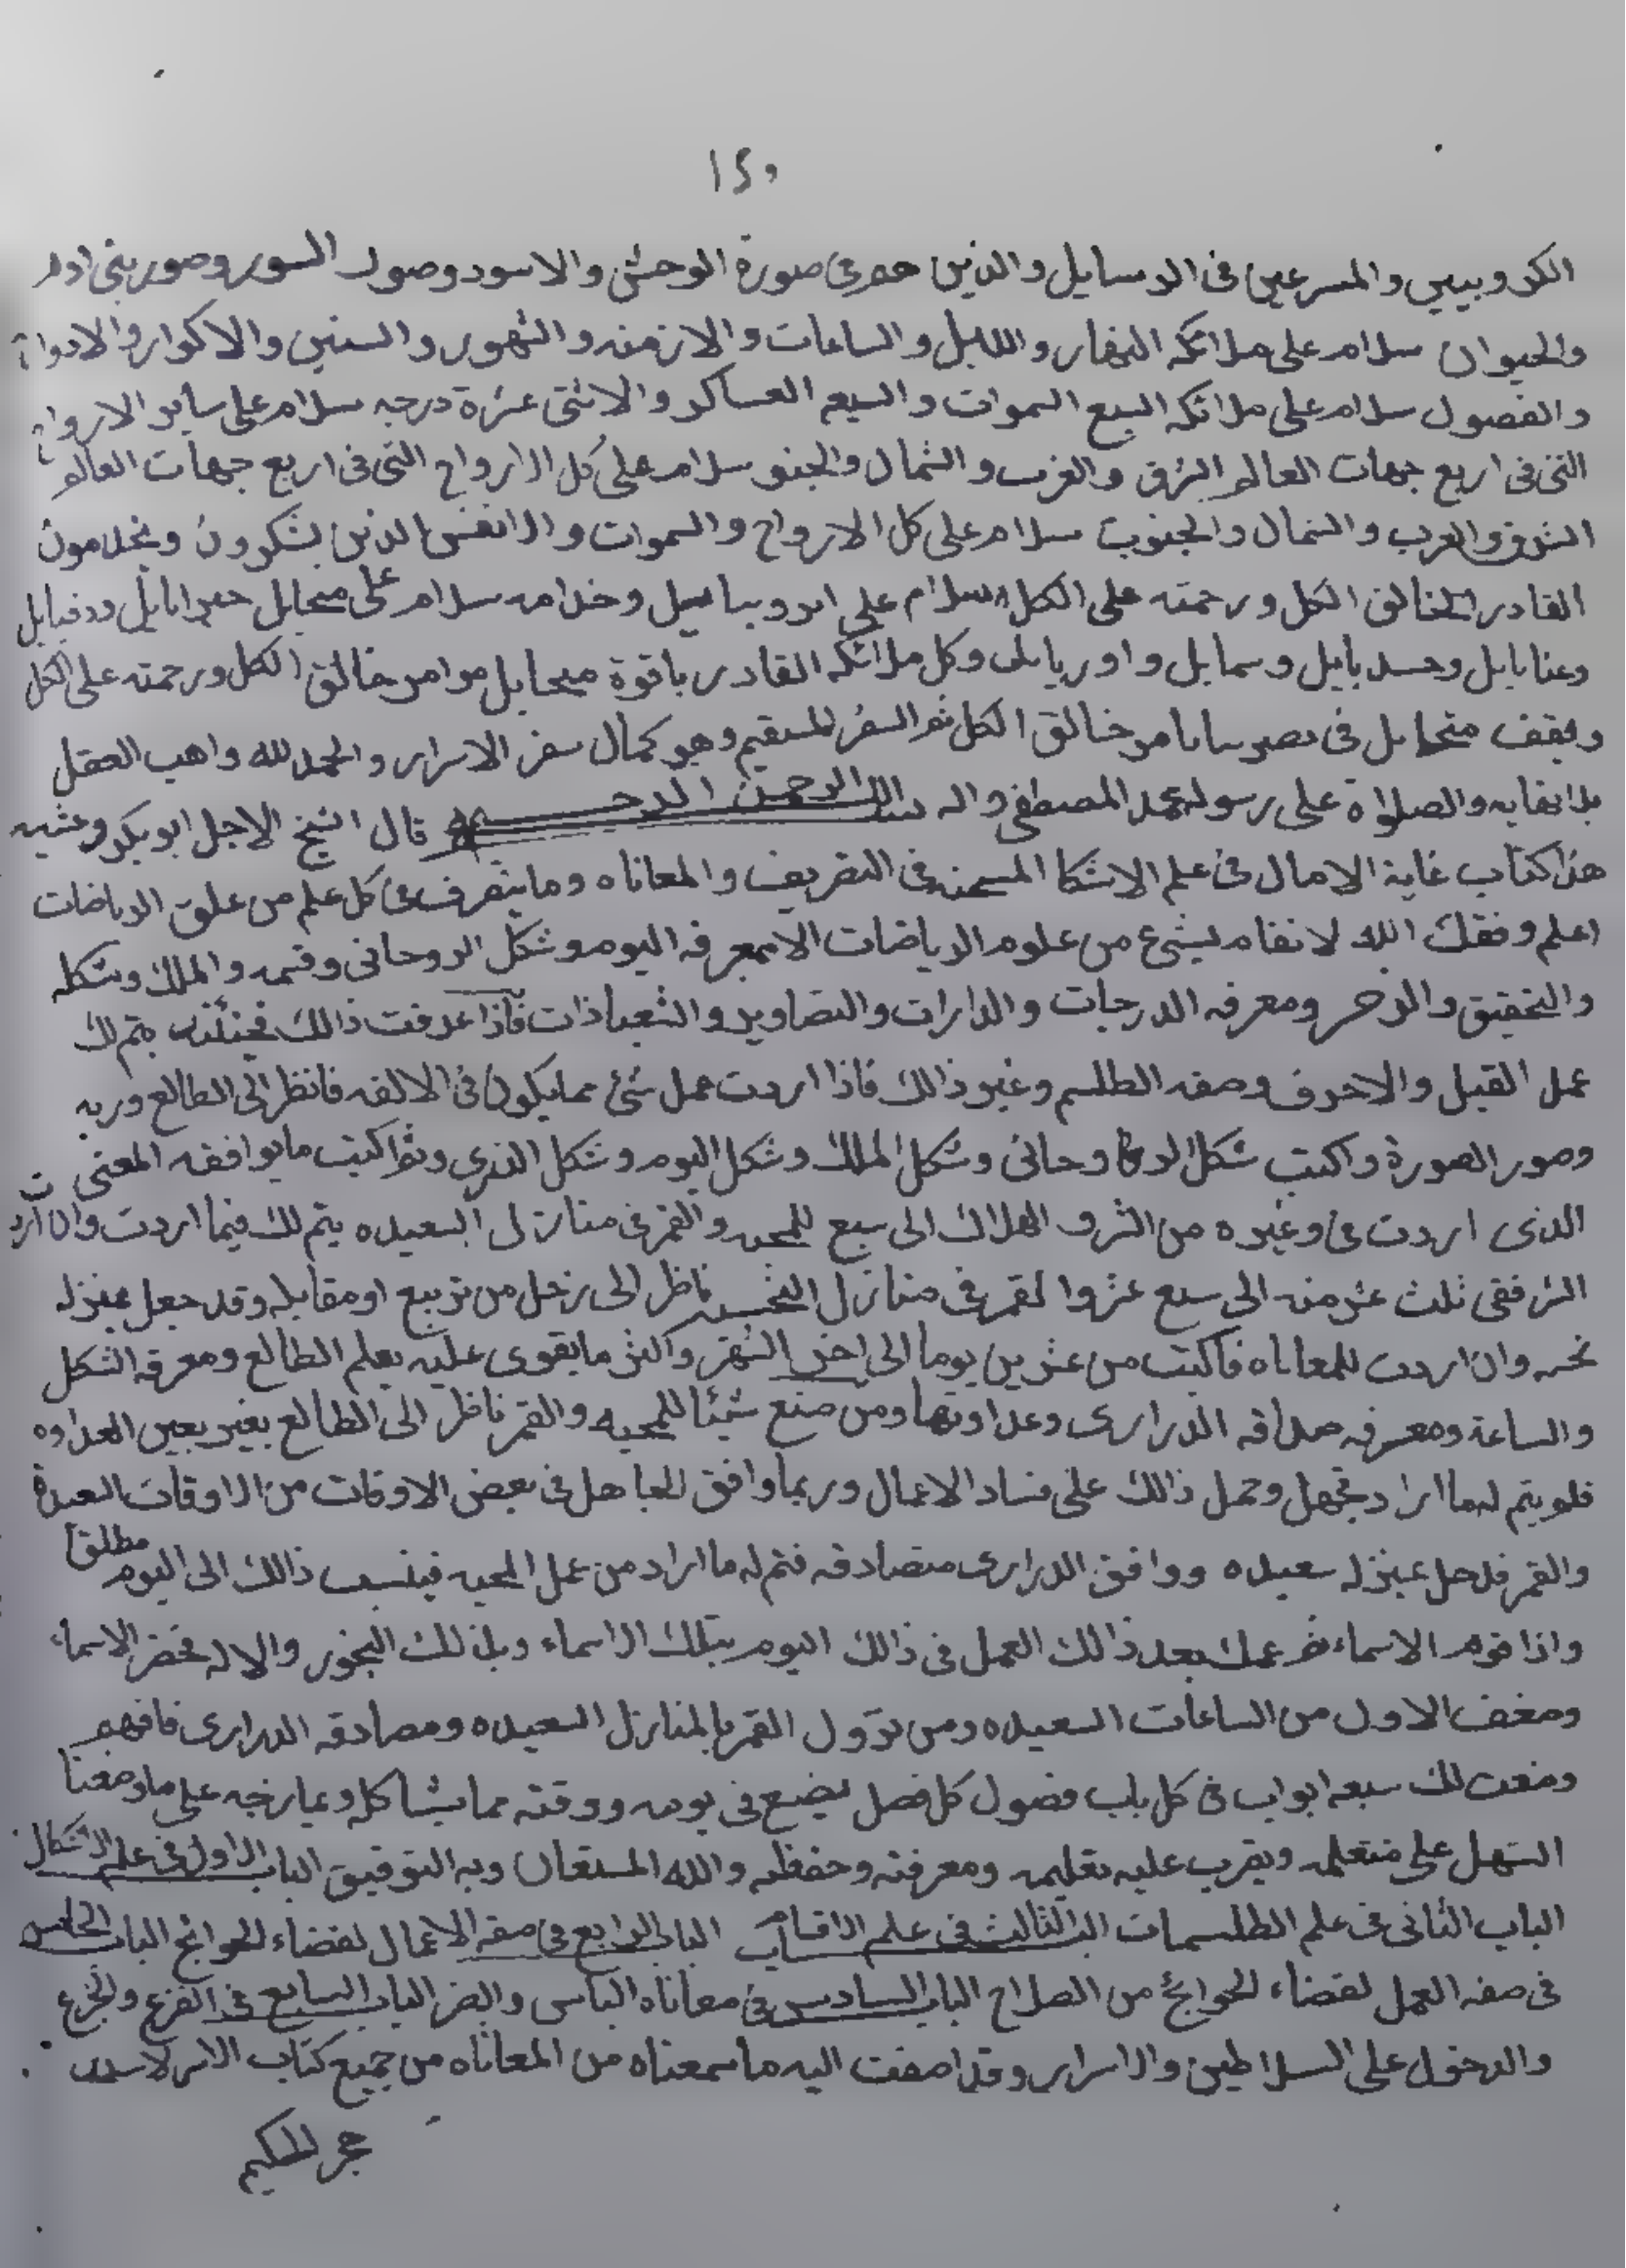 ١٢٥
الكروبيين والمسرعين فى الرسايل والذين هم فى صورة الوحش والاسود وصور السور وصور بنى ادم
والحيوان سلام على ملائكه النهار والليل والساعات والازمنه والشهور والسنين والاكوار والادوار
والفصول سلام على ملائكه السبع السموات والسبع العساكر والاثنى عشرة درجه سلام على ساير الارواح
التى فى اربع جهات العالم الشرق والغرب والشمال والجنوب سلام على كل الارواح التى فى اربع جهات العالم
الشرق والغرب والشمال والجنوب سلام على كل الارواح والسموات والانفس الذين يشكرون ويخدمون
القادر الخالق الكل ورحمته على الكل سلام على وخدامه سلام على ميحايل
وعنايايل وسمايل وكل ملائكه القادر ياقوة ميحايل موامر خالق الكل ورحمته على الكل
ويقف ميحايل فى بامر خالق الكل ثم السفر المستقيم وهو كمال سفر الاسرار والحمد لله واهب العقل
والصلواة على رسوله محمد المصطفى واله الرحمن الرحيم قال الشيخ الاجل ابو بكر
هذا كتاب غاية الامال فى علم الاشكا فى التصريف والمعاناه وما يتصرف فى كل علم من علوم الرياضات
اعلم وفقك الله لا نفام بشىء من علوم الرياضات الا بمعرفه اليوم وشكل الروحانى وقسمه والملك وشكله
والتحقيق ومعرفه الدرجات والدارات والتصاوير والشعباذات فاذا عرفت ذالك فحينئذ يتم لك
عمل القبل والاحرف وصفه الطلسم وغير ذالك فاذا اردت عمل شئ مما يكون فى الالفه فانظر الى الطالع وربه
وصور الصورة واكتب شكل الروحانى وشكل الملك وشكل اليوم وشكل الذرى وثم اكتب ما يوافقه المعنى
الذى اردت فى وغيره من الشرف الهلاك الى سبع للمحبه والقمر فى منازل السعيده يتم لك فيما اردت وان اردت
الشر ففى ثلث عشر منه الى سبع عشر والقمر فى منازل النحسه ناظر الى زحل من تربيع او مقابله وقد جعل بمنزله
نحسه وان اردت للمعاناه فاكتب من عشرين يوما الى اخر الشهر واكثر ما يقوى عليه بعلم الطالع ومعرفه الشكل
والساعة ومعرفه صداقه الدرارى وعداوتها ومن صنع شيئا للمحبه والقمر ناظر الى الطالع بغير بعين العداوه
فلو يتم له ما اراد فجهل وحمل ذالك على فساد الاعمال وربما وافق الجاهل فى بعض الاوقات من الاوقات
والقمر قد حل بمنزله سعيده ووافق الدرارى متصادقه فتم له ما اراد من عمل المحبه فينسب ذالك الى اليوم مطلقا
واذا الاسماء بعد ذالك العمل فى ذالك اليوم بتلك الاسماء وبذالك البخور والاله الاسماء
الاول من الساعات السعيده ومن نزول القمر بالمنازل السعيده ومصادقه الدرارى فافهم
وضعت لك سبعه ابواب فى كل باب فصول كل فصل يصنع فى يومه ووقته مما يشاكله على ما وضعنا
السهل على متعلمه ويقرب عليه تعليمه ومعرفته وحفظه والله المستعان وبه التوفيق الباب الاول فى علم الاشكال
الباب الثانى فى علم الطلسمات الباب الثالث فى علم الاقسام الباب الرابع فى صفه الاعمال لقضاء الحوائج الباب الخامس
فى صفه العمل لقضاء الحوائج من الصلاح الباب السادس فى معاناه الباس والضر الباب السابع فى الفزع والجزع
والدخول على السلاطين والاسرار وقد اضفت اليه ما سمعناه من المعاناه من جميع كتاب